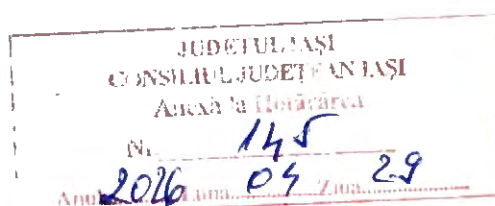 JUDEȚUL IAȘI
CONSILIUL JUDEȚEAN IAȘI
Anexă la Hotărârea
Nr. 145
Anul 2026 Luna 04 Ziua 29